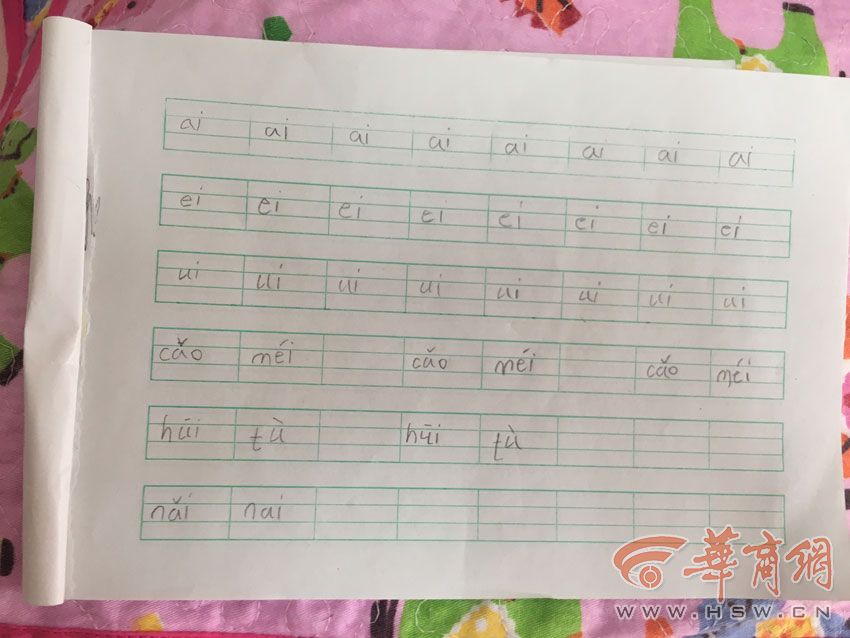 ai ai ai ai ai ai ai ai
ei ei ei ei ei ei ei ei
ui ui ui ui ui ui ui ui
cǎo méi cǎo méi cǎo méi
hūi tù hūi tù
nǎi nai
華商網
WWW.HSW.CN